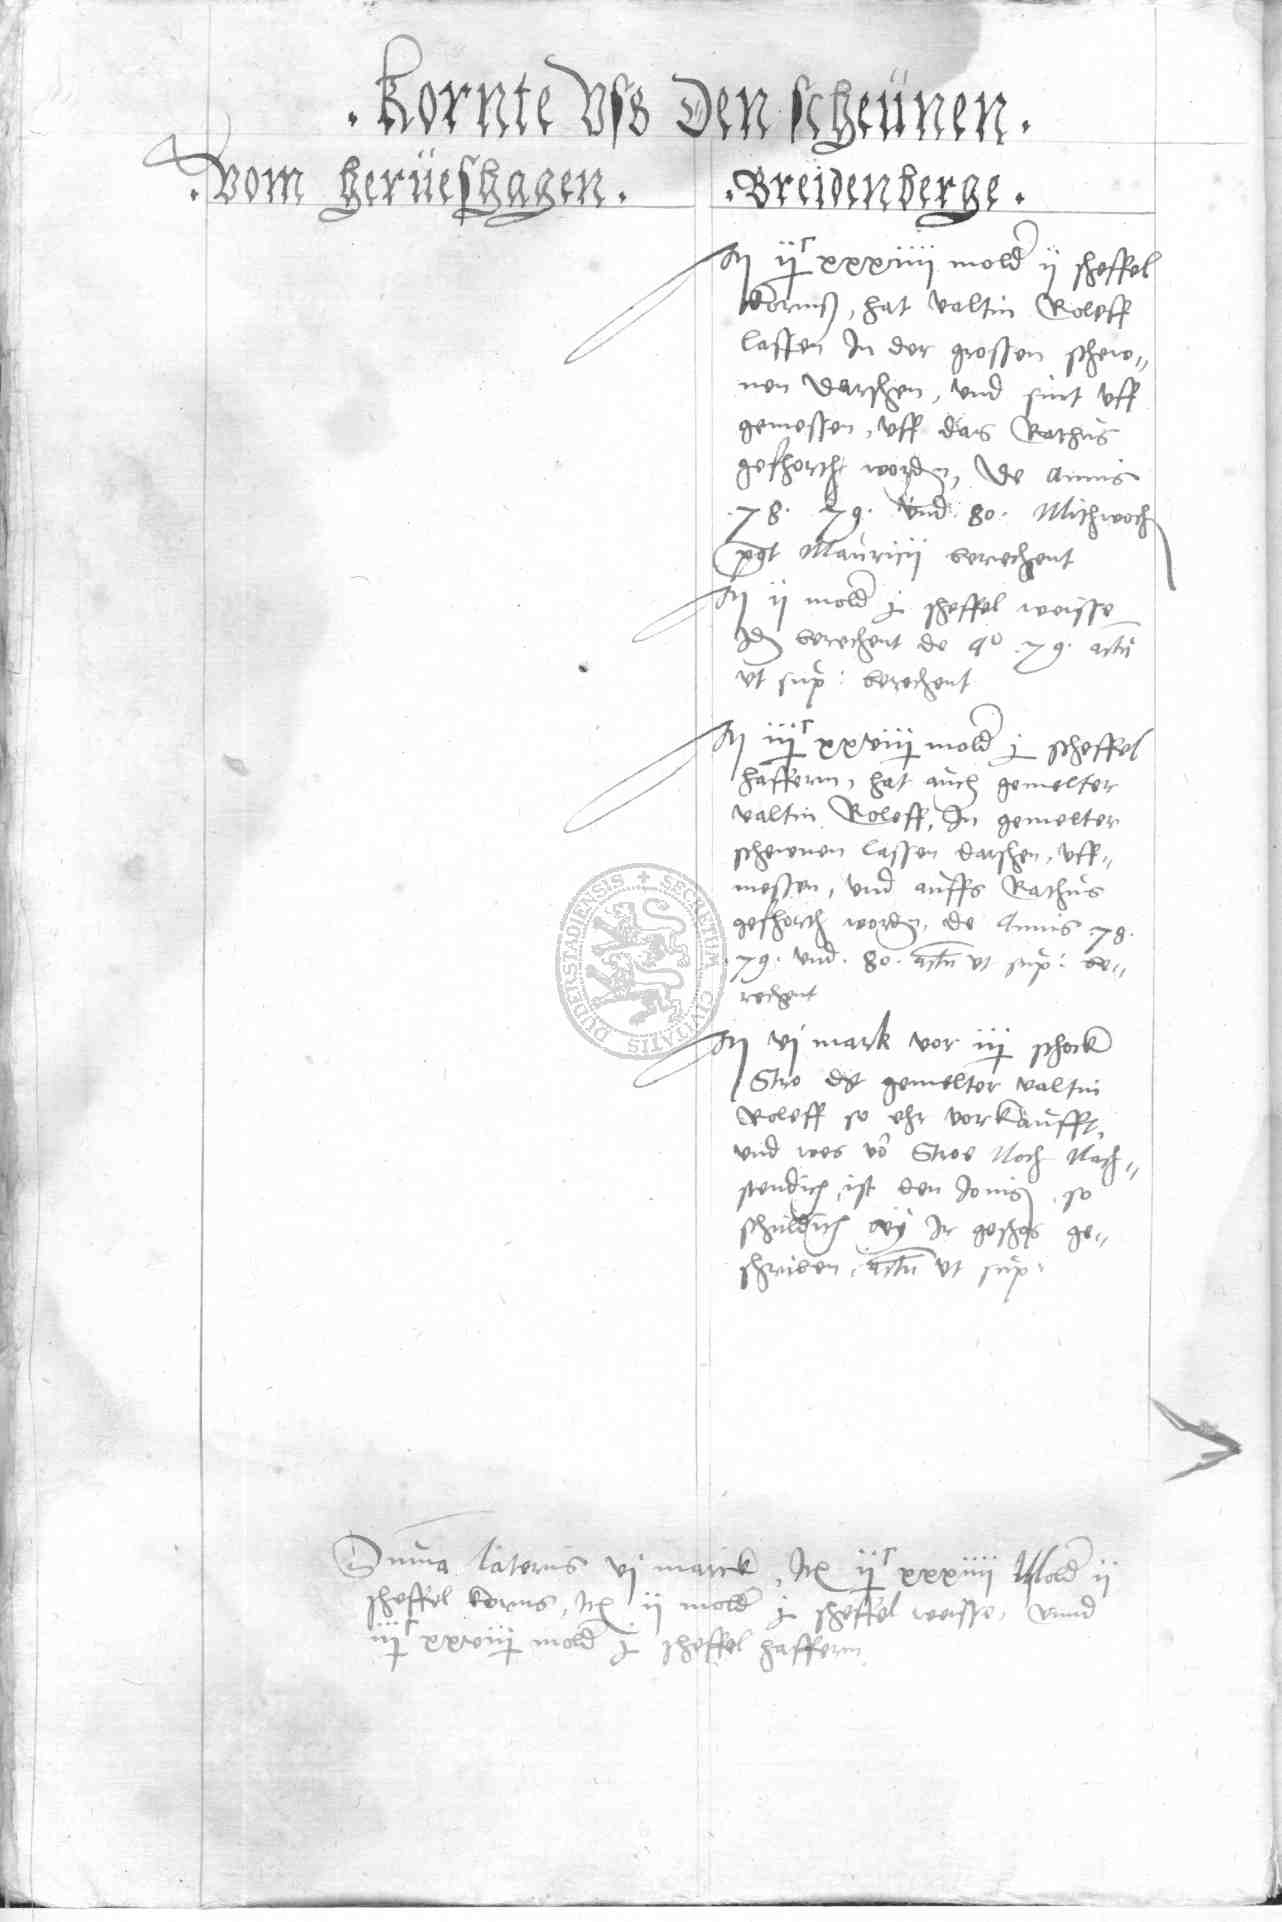 . Kornte Vſs Den ſcheünen .
. Vom herüeſhagen .
. Breidenberge .
It ijᶜ xxxiiij mold ij scheffel
korns, hat Valtin Roleff
lassen In der grossen schew„
nen darschen, vnd sint vff
gemessen, vff das Rathus
geschorth worden, de Annis
.78. 79. vnd .80. Mithwoch
post Mauricij berechent
It ij mold j scheffel weisse
berechent de aº .79. actu
vt sup: berechent
It iijᶜ xxviij mold j scheffel
hafferm, hat auch gemelter
Valtin Roleff, In gemelter
schewnen lassen darschen, vff„
messen, vnd auffs Rathus
geschorth worden, de Annis 78.
.79. vnd .80. actu vt sup: be„
rechent
It vj mark vor iij schock
Stro gemelter Valtin
Roleff so ehr vorkaufft,
vnd wes vo Stroe Noch Nach„
stendich, ist den so
schuldich Ir ge„
schrieben, actu vt sup:
Suma lateris vj marck, Ite ijᶜ xxxiiij Mold ij
scheffel korns, Ite ij mold j scheffel weisse, vnnd
iijᶜ xxviij mold j scheffel hafferm
SECRETUM CIVITATIS DUDERSTADIENSIS